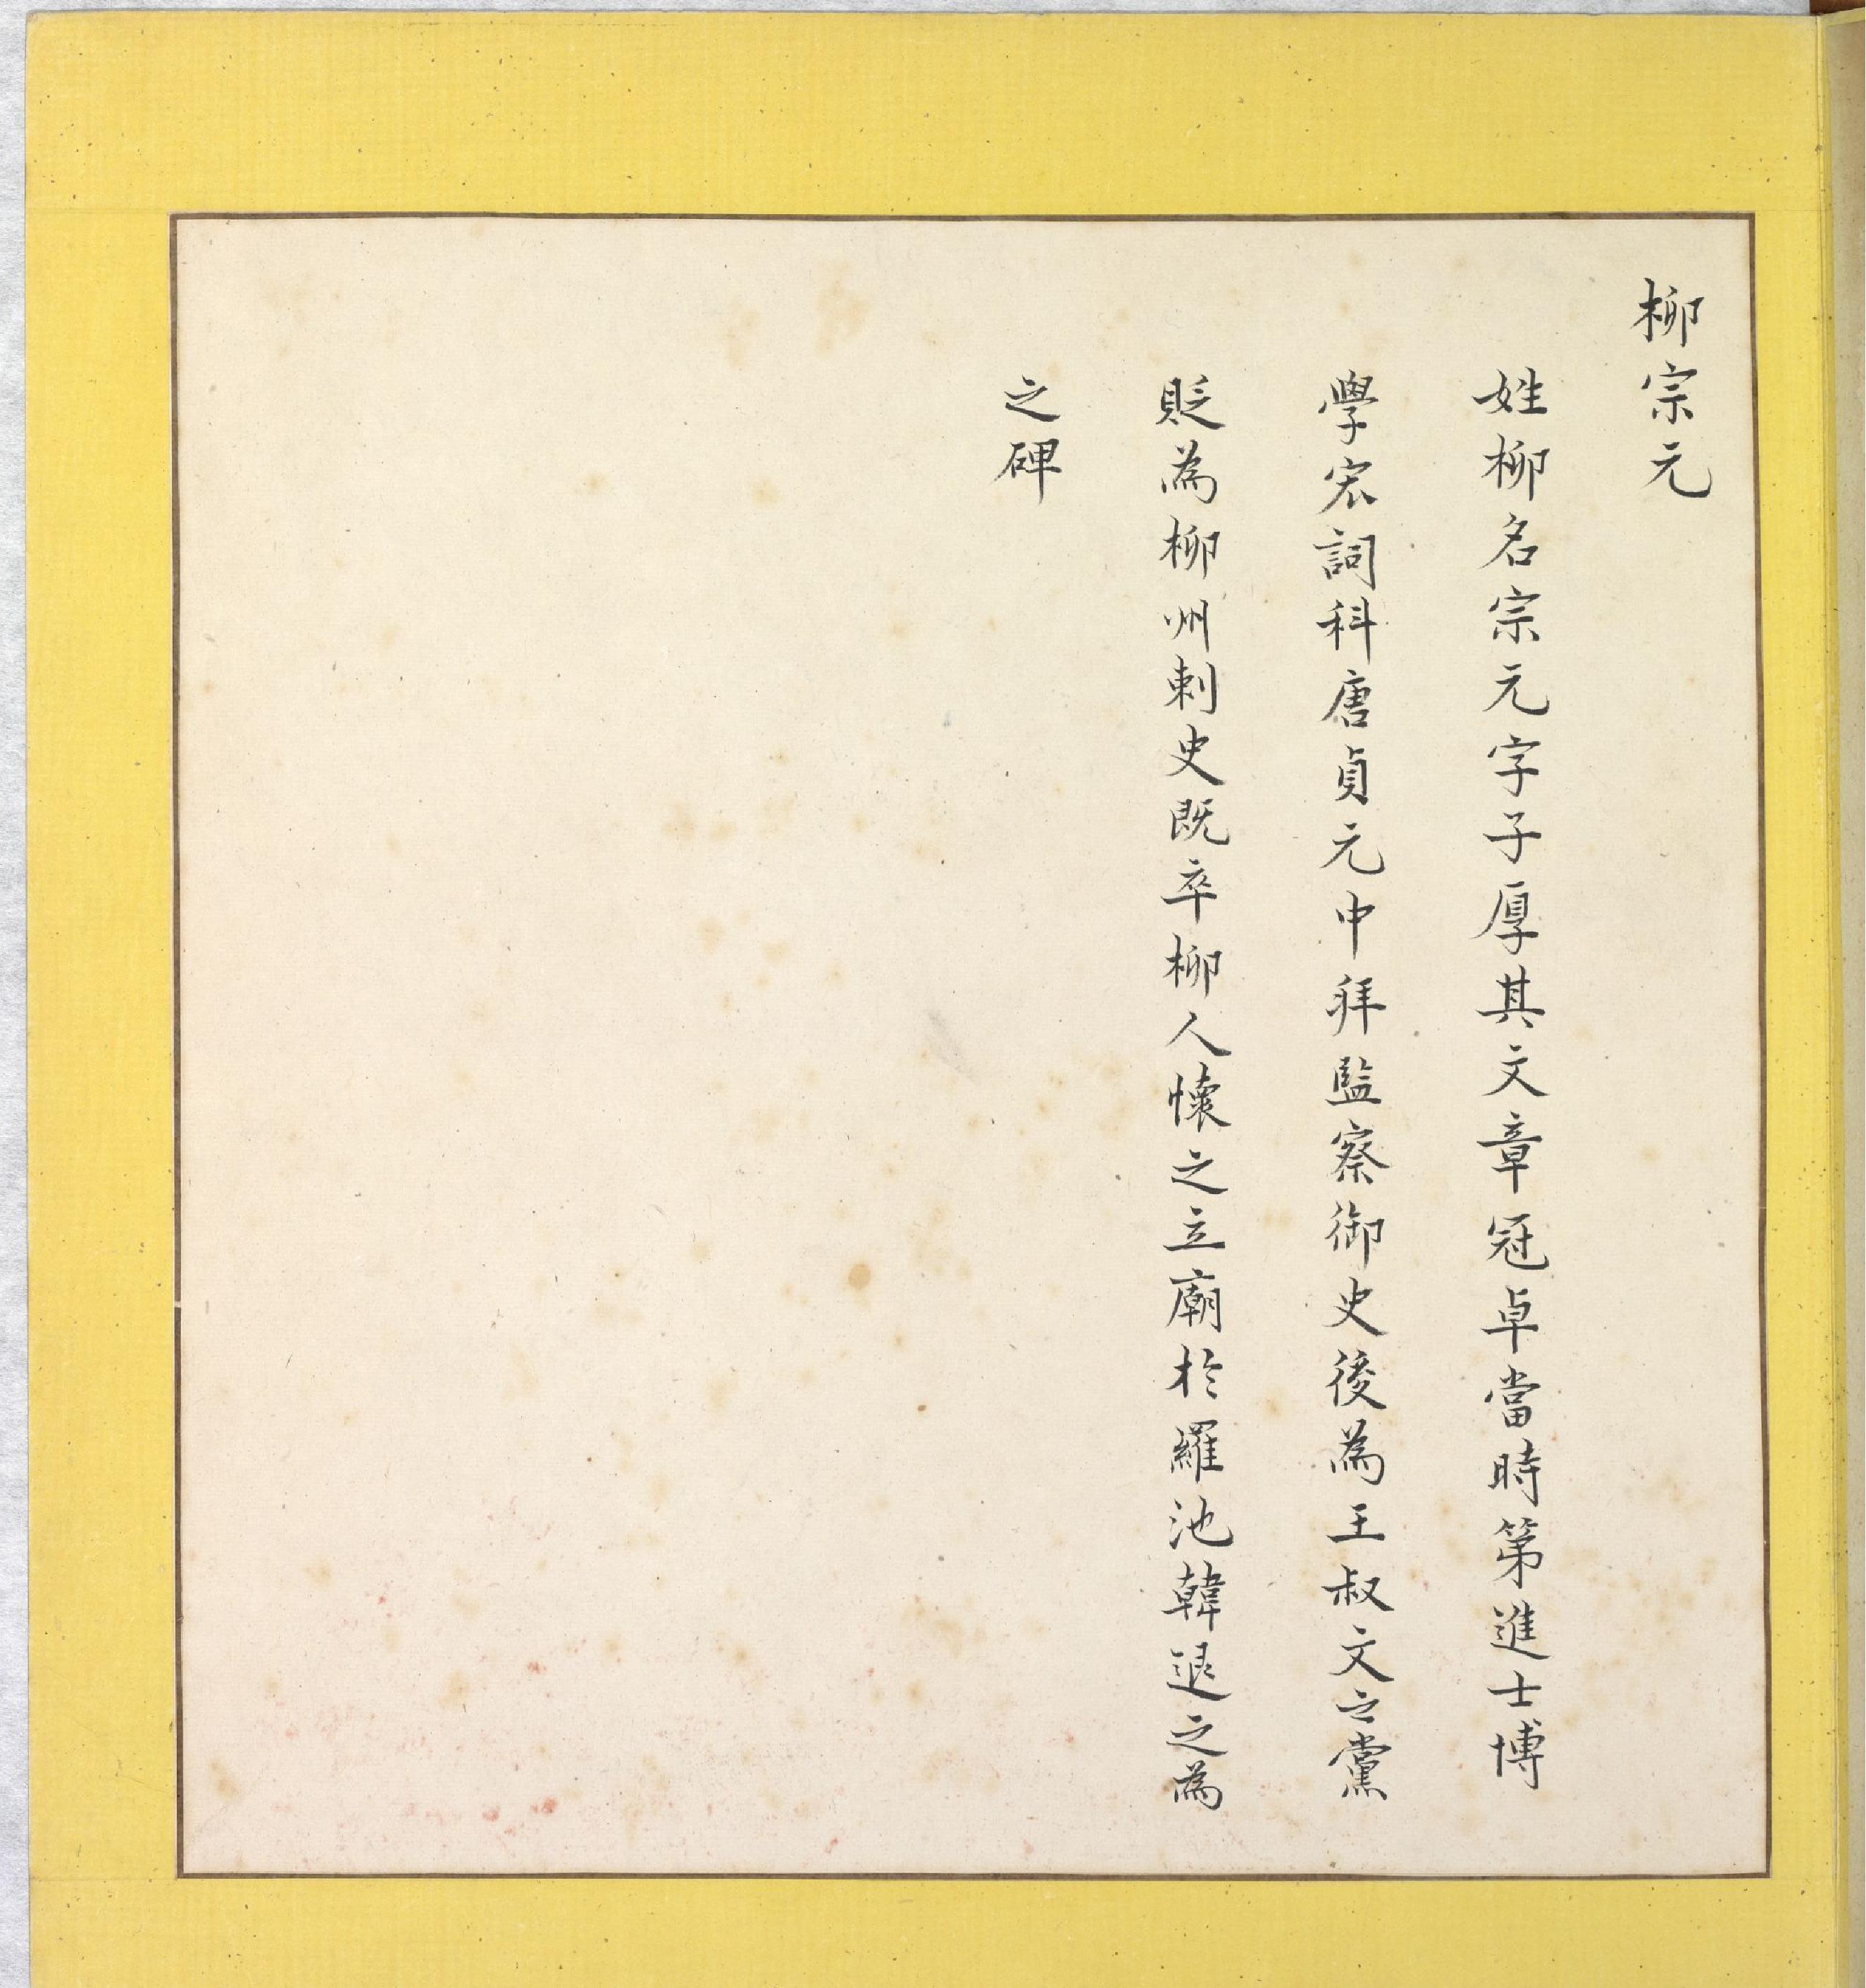 柳宗元
姓柳名宗元字子厚其文章冠卓當時第進士博
學宏詞科唐貞元中拜監察御史後為王叔文之黨
貶為柳州刺史既卒柳人懷之立廟於羅池韓退之為
之碑